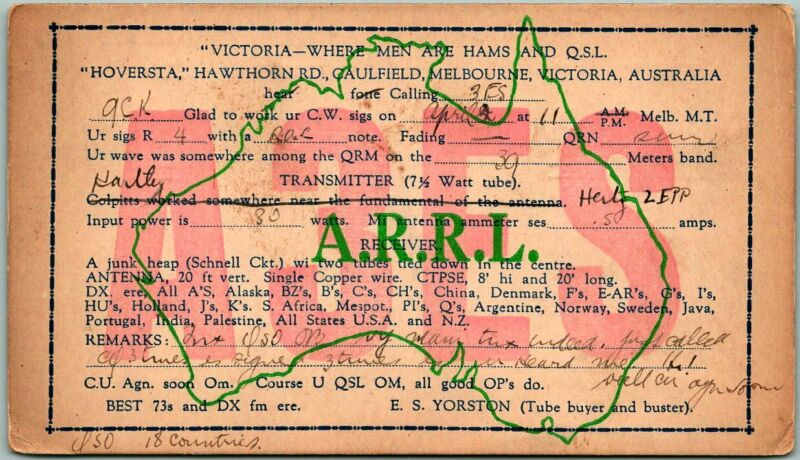 "VICTORIA—WHERE MEN ARE HAMS AND Q.S.L.
"HOVERSTA," HAWTHORN RD., CAULFIELD, MELBOURNE, VICTORIA, AUSTRALIA
hear fone Calling 3ES
9CK Glad to work ur C.W. sigs on April at 11 A.M. P.M. Melb. M.T.
Ur sigs R 4 with a RAC note. Fading — QRN
Ur wave was somewhere among the QRM on the 39 Meters band.
Hartly TRANSMITTER (7½ Watt tube). Hertz ZEPP
Colpitts worked somewhere near the fundamental of the antenna.
Input power is 30 watts. My antenna ammeter ses .50 amps.
A3ES
A.R.R.L.
RECEIVER
A junk heap (Schnell Ckt.) wi two tubes tied down in the centre.
ANTENNA, 20 ft vert. Single Copper wire. CTPSE, 8' hi and 20' long.
DX. ere, All A'S, Alaska, BZ's, B's, C's, CH's, China, Denmark, F's, E-AR's, G's, I's,
HU's, Holland, J's, K's. S. Africa, Mespot., PI's, Q's, Argentine, Norway, Sweden, Java,
Portugal, India, Palestine, All States U.S.A. and N.Z.
REMARKS: Tnx QSO OB many tnx indeed, called
3 times es signed 3 times heard me
call cu agn soon
C.U. Agn. soon Om. Course U QSL OM, all good OP's do.
BEST 73s and DX fm ere. E. S. YORSTON (Tube buyer and buster).
QSO 18 countries.